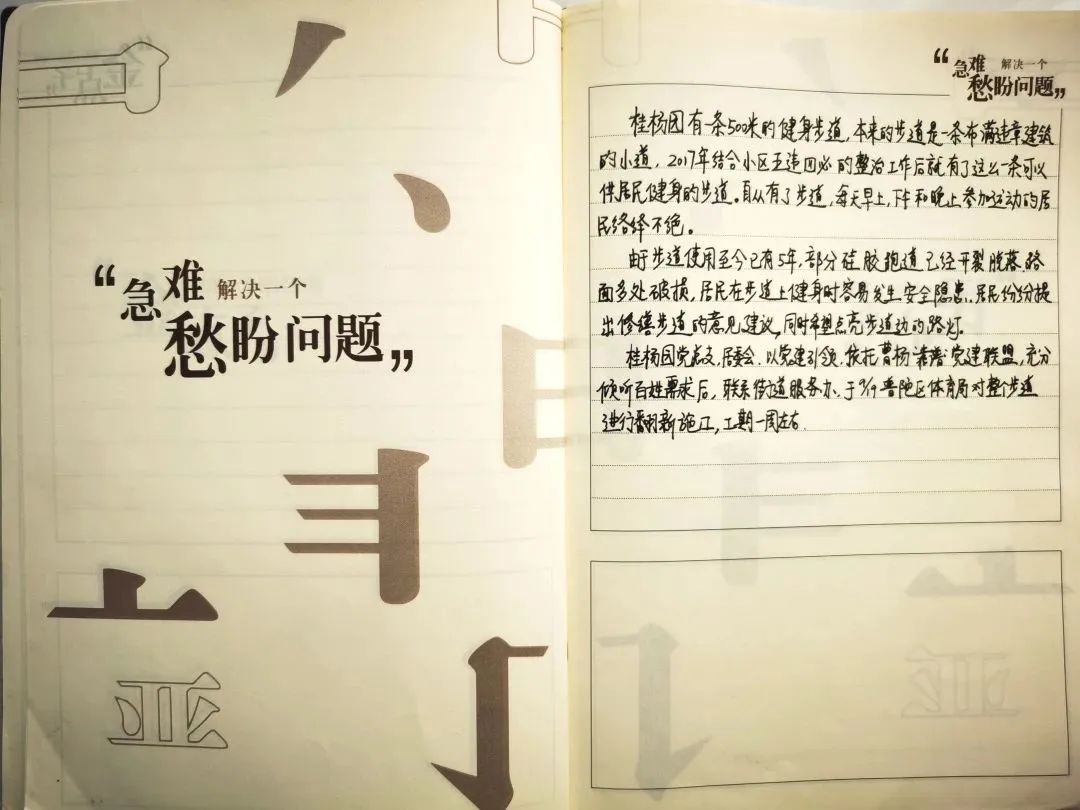 “急难
解决一个
愁盼问题”
“急难
解决一个
愁盼问题”
桂杨园有一条500米的健身步道,本来的步道是一条布满违章建筑
的小道,2017年结合小区五违四必的整治工作后就有了这么一条可以
供居民健身的步道。自从有了步道,每天早上,下午和晚上参加运动的居
民络绎不绝。
由于步道使用至今已有5年,部分硅胶跑道已经开裂脱落、路
面多处破损,居民在步道上健身时容易发生安全隐患,居民纷纷提
出修缮步道的意见建议,同时希望点亮步道边的路灯。
桂杨园党总支、居委会、以党建引领,依托曹杨“靠谱”党建联盟,充分
倾听百姓需求后,联系街道服务办、于9/19普陀区体育局对整个步道
进行翻新施工,工期一周左右.